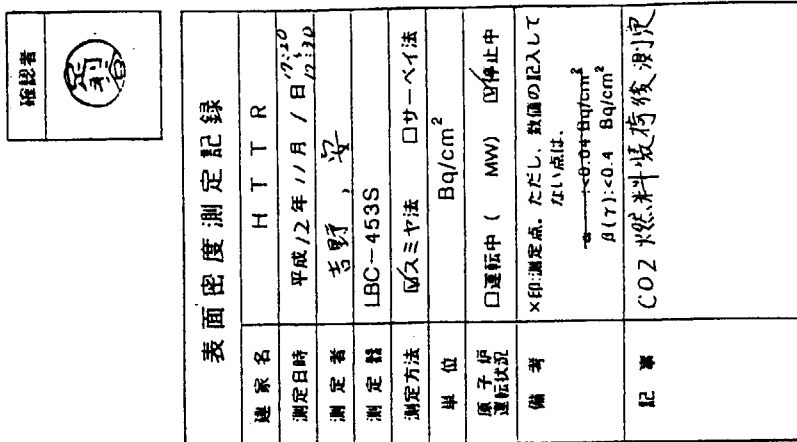 確認者
表面密度測定記録
建家名 HTTR
測定日時 平成12年11月1日 17:20 〜 17:30
測定者 吉野、安
測定器 LBC-453S
測定方法 ☑スミヤ法 □サーベイ法
単位 Bq/cm²
原子炉運転状況 □運転中( MW) ☑停止中
備考 ×印:測定点。ただし、数値の記入して
ない点は、
α :<0.04 Bq/cm²
β(γ):<0.4 Bq/cm²
記事 CO2燃料装荷後測定